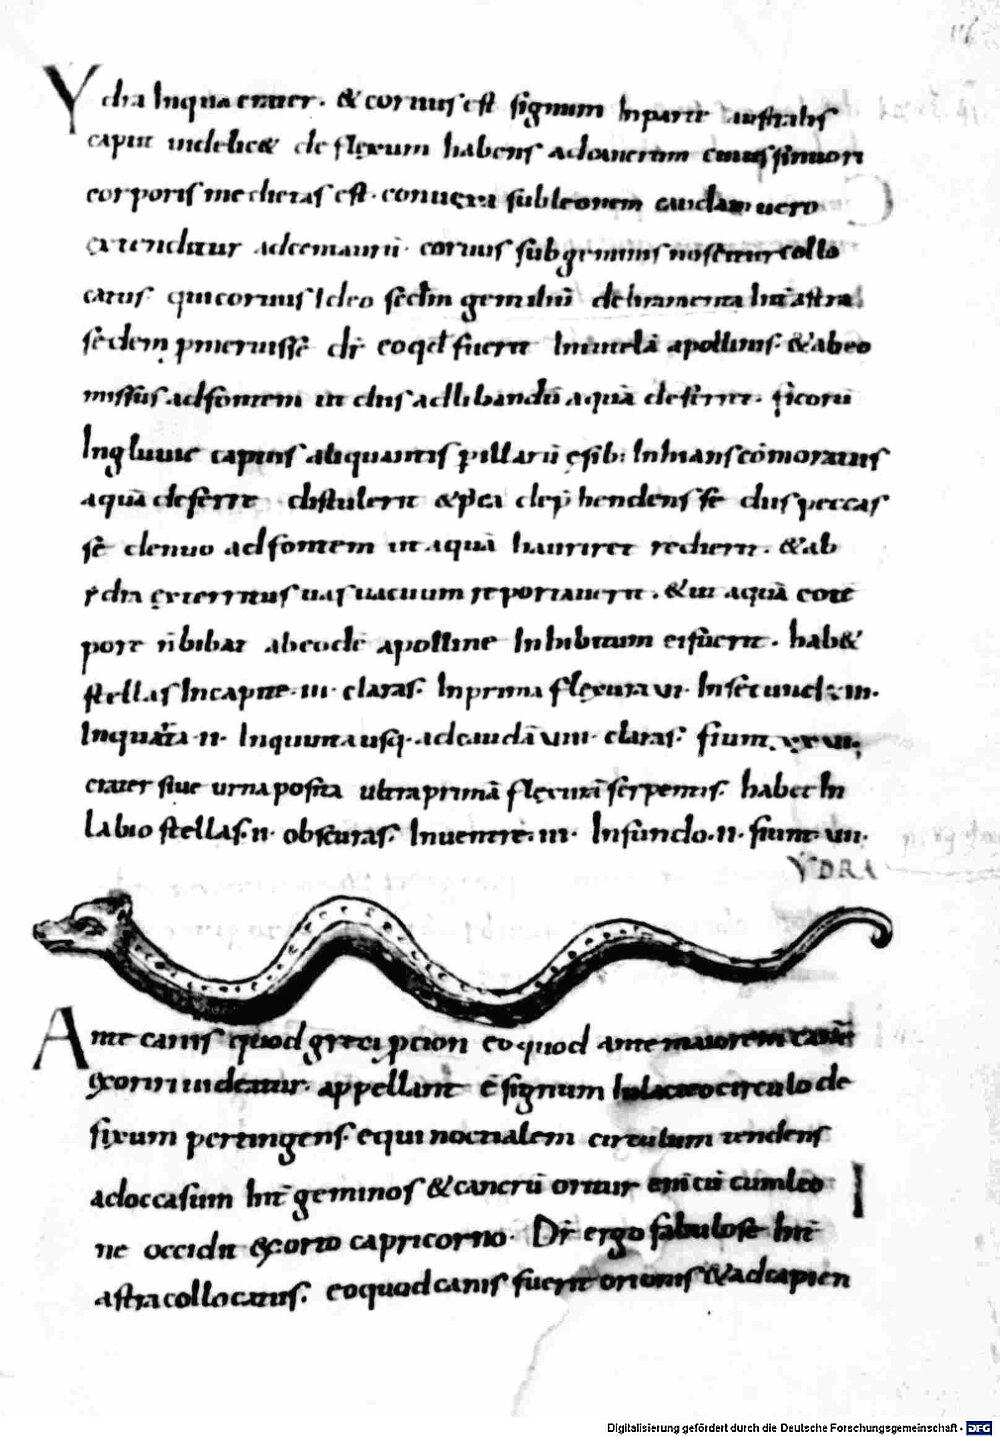 Ydra In qua crater. & coruus est signum In parte australis
caput uidelic& deflexum habens ad cancrum
corporis me dietas est. conuexa sub leonem cauda uero
extenditur ad centaurū. coruus sub geminis noscitur collo
catus. qui coruus Ideo sedm gentiliū deliramenta Int astra
sedem pmeruisse dr eo qd fuerit In tutela apollinis. & ab eo
missus ad fontem ut eius ad libandū aquā deferret. ficorū
Ingluuie captus aliquantis p illarū esib; Inhians comoratus
aquā deferre distulerit & pea dephendens se eius peccas
se denuo ad fontem ut aquā hauriret redierit. & ab
ydra exterritus uas uacuum reportauerit. & ut aquā eo te
pore n bibat ab eode apolline Inhibitum ei fuerit. hab&
stellas In capite. III. claras. In prima flexura VI. In secunda. III.
In quarta. II. In quinta usq. ad caudā VIII. claras. fiunt. XXVI.
crater siue urna posita ultra primā flexurā serpentis. habet In
labio stellas. II. obscuras. In uentre. III. In fundo. II. fiunt. VII.
YDRA
Ante canis quod greci pcion eo quod ante maiorem
exoriri uideatur. appellant e signum In lacteo circulo de
fixum pertingens. equinoctialem circulum tendens
ad occasum Int geminos & cancrū oritur cum leo
ne occidit exorto capricorno. Dr ergo fabulose Int
astra collocatus. eo quod canis fuerit orionis & ad capien
Digitalisierung gefördert durch die Deutsche Forschungsgemeinschaft - DFG